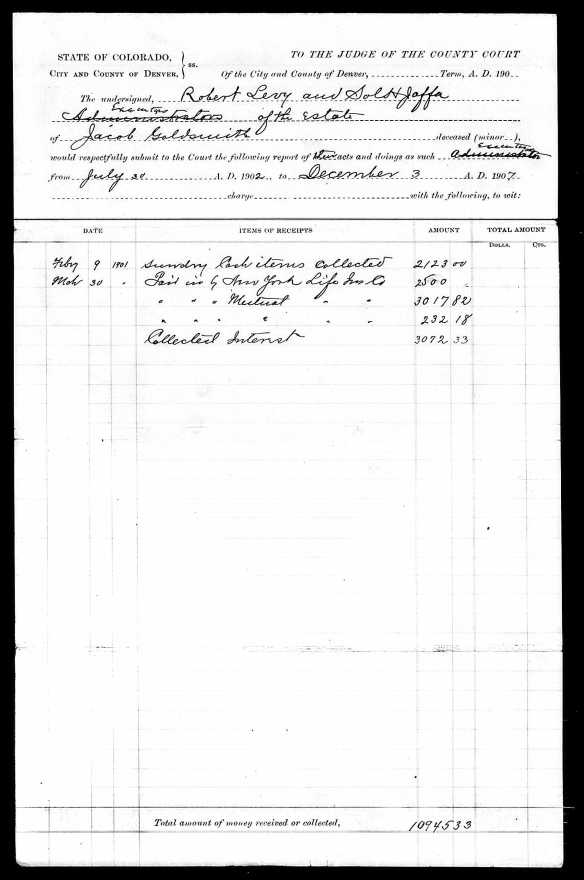 STATE OF COLORADO, } ss. TO THE JUDGE OF THE COUNTY COURT
CITY AND COUNTY OF DENVER, Of the City and County of Denver, Term, A. D. 190
The undersigned, Robert Levy and Sol H Jaffa
Executors
Administrators of the Estate
of Jacob Goldsmith deceased (minor ),
would respectfully submit to the Court the following report of their acts and doings as such Executors Administrators
from July 30 A. D. 1902 to December 3 A. D. 1907
charge with the following, to wit:
DATE ITEMS OF RECEIPTS AMOUNT TOTAL AMOUNT
DOLLS. CTS.
Feby 9 1901 Sundry Cash items collected 2123 00
Mch 30 " Paid in by New York Life Ins Co 2500
" " " Mutual " " 3017 82
" " " " " " 232 18
Collected Interest 3072 33
Total amount of money received or collected, 10945 33